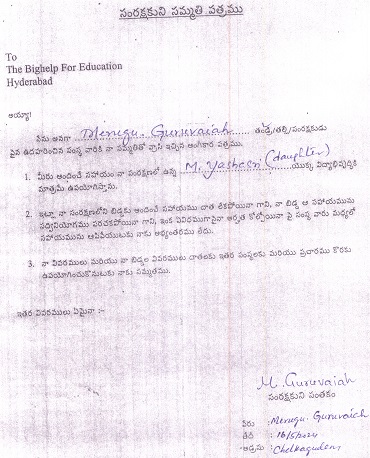 సంరక్షకుని సమ్మతి పత్రము
To
The Bighelp For Education
Hyderabad
అయ్యా!
నేను అనగా Merugu. Guruvaiah తండ్రి/తల్లి/సంరక్షకుడు
పైన ఉదహరించిన సంస్థ వారికి నా సమ్మతితో వ్రాసి ఇచ్చిన అంగీకార పత్రము.
1. మీరు అందించే సహాయం నా సంరక్షణలో ఉన్న M. Yashasri (daughter) యొక్క విద్యాభివృద్ధికి
మాత్రమే ఉపయోగిస్తాను.
2. ఇట్లు నా సంరక్షణలోని బిడ్డకు అందించే సహాయము దాత లేకపోయినా గాని, నా బిడ్డ ఆ సహాయమును
సద్వినియోగము పరచకపోయినా గాని, ఇంక ఏవిధముగానైనా అర్హత కోల్పోయినా పై సంస్థ వారు మధ్యలో
సహాయమును ఆపివేయుటకు నాకు అభ్యంతరము లేదు.
3. నా వివరములు మరియు నా బిడ్డల వివరములు దాతలకు ఇతర సంస్థలకు మరియు ప్రచారము కొరకు
ఉపయోగించుకొనుటకు నాకు సమ్మతము.
ఇతర వివరములు ఏమైనా :-
M. Guruvaiah
సంరక్షకుని సంతకం
పేరు : Merugu. Guruvaiah
తేది : 16/5/2024
అడ్రసు : Chelkagudem